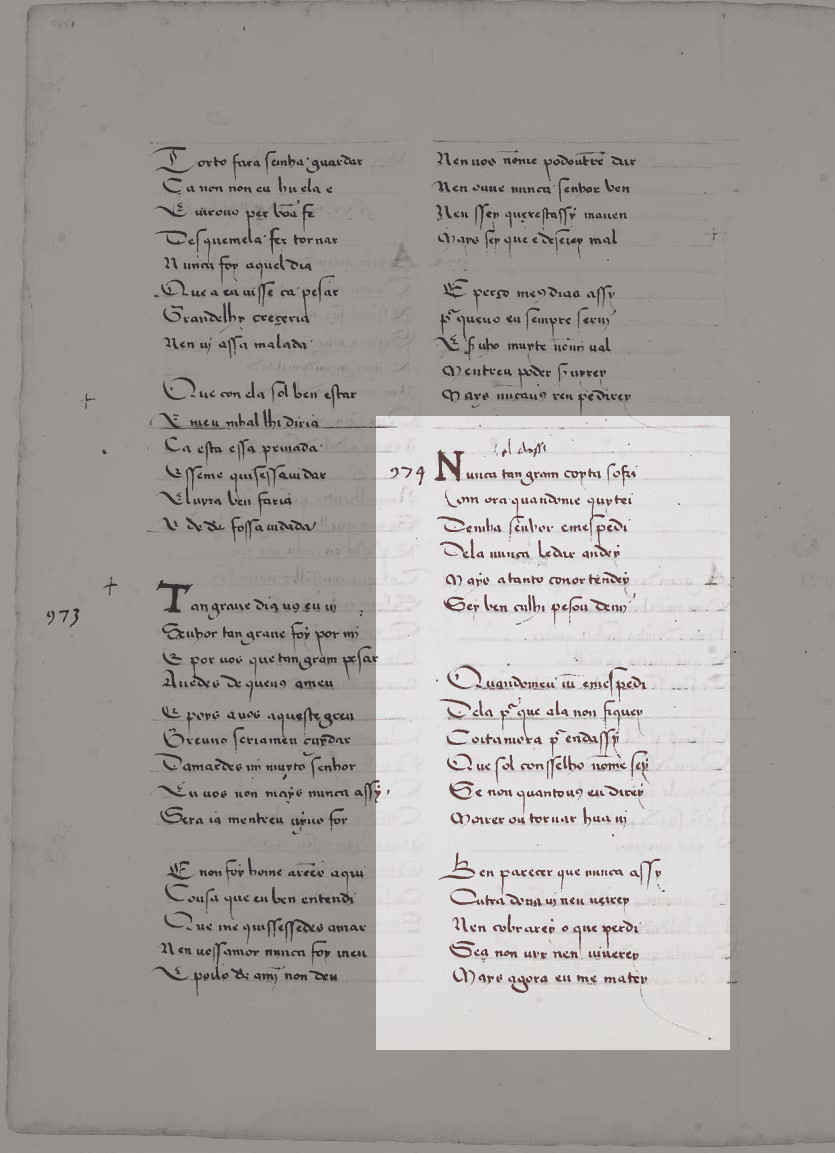 Torto fara senha guardar
Ca non non eu hu ela e
E uiuono per boā fe
Desquemela fez tornar
Nunca foy aquel dia
Que a eu uisse ca pesar
Grandelhy creçeria
Nen uj assa malada
Que con ela sol ben estar
E meu mhal lhi diria
Ca esta essa priuada
Esseme quisessauidar
Eluyra ben faria
E de d's fossa uidada
973
Tan graue dia u9 eu uj
Senhor tan graue foy por mj
E por uos que tan gram pesar
Auedes de quen9 ameu
E poys auos aqueste greu
Greuno seriamen
Damardes mj muyto senhor
Eu uos non mays nunca assy
Sera ia mentreu uyuo for
E non foy home aqui
Cousa que eu ben entendi
Que me quissessedes amar
Nen uossamor nunca foy meu
E poilo d's amj non deu
Nen uos nōme podoutrē dar
Nen ouue nunca senhor ben
Nen ssey querestassy mauen
Mays sey que e deserey mal
E perço me9 dias assy
pᵉ queuo eu sempre serui
E fuho muyte nōmj ual
Mentreu poder s'uyrey
Mays nūcau9 ren pedirey
974
Nunca tan gram coyta sofri
Com ora quandome quytei
Demha senhor emespedi
Dela nunca ledar andey
Mays atanto conortendey
Sey ben culhi pesou demj
Quandomeu ui emespedi
Dela pᵉ que ala non fiquey
Coitamora pᵉ endassy
Que sol consselho nōme sey
Se non quantou9 eu direy
Morrer ou tornar hua uj
Ben pareçer que nunca assy
Outra dona uj neu ueirey
Nen cobrarey o que perdi
Sea non uyr nen uiuerey
Mays agora eu me matey